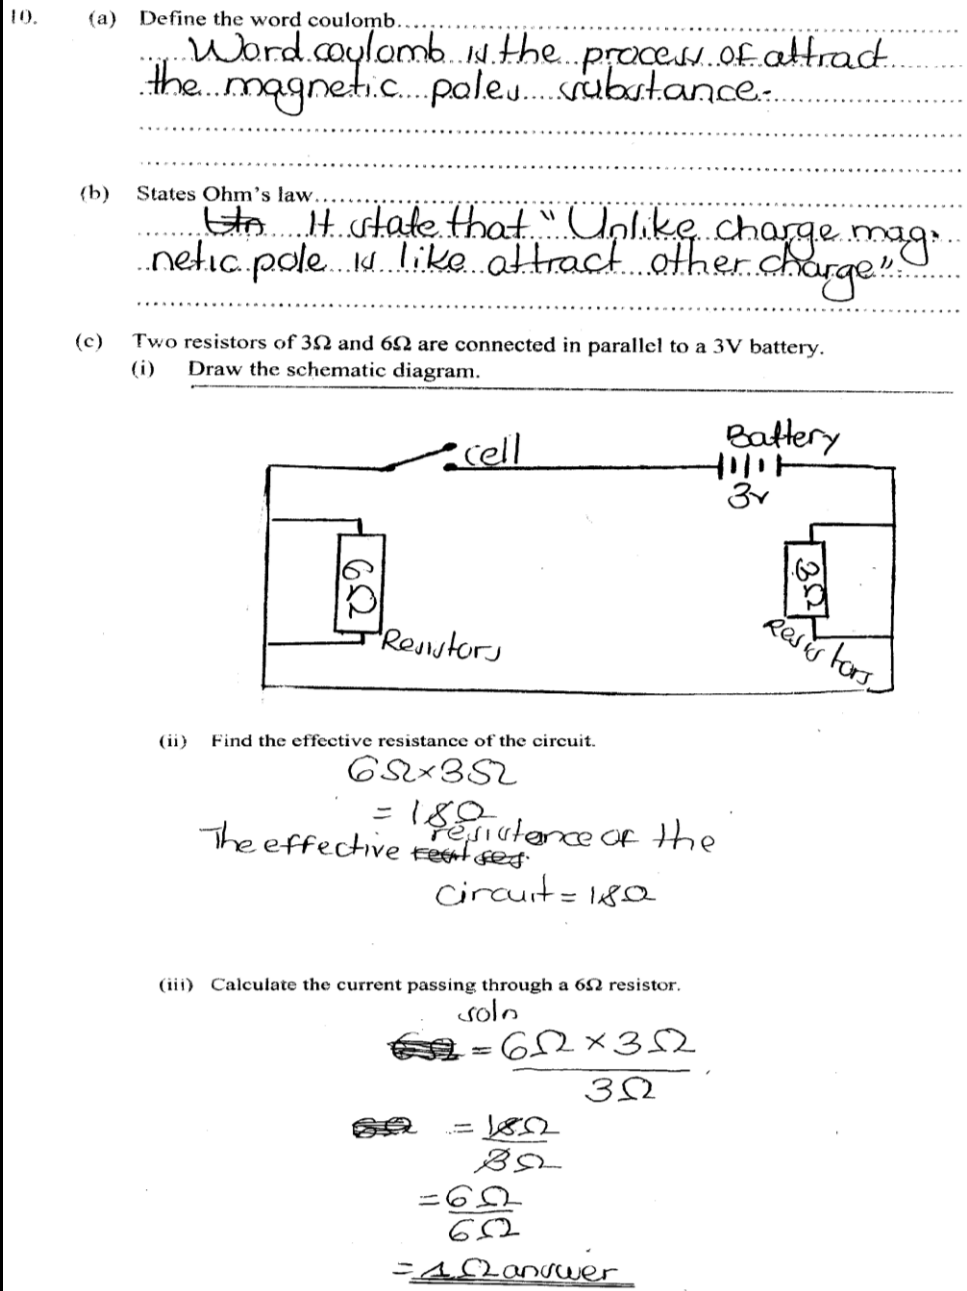 10. (a) Define the word coulomb
Word coulomb is the process of attract
the magnetic poles substance.
(b) States Ohm's law
It state that "Unlike charge mag-
netic pole is like attract other charge".
(c) Two resistors of 3Ω and 6Ω are connected in parallel to a 3V battery.
(i) Draw the schematic diagram.
cell
Battery
3v
6Ω
Resistors
3Ω
Resistors
(ii) Find the effective resistance of the circuit.
6Ω×3Ω
= 18Ω
The effective resistance of the
circuit = 18Ω
(iii) Calculate the current passing through a 6Ω resistor.
soln
= 6Ω × 3Ω
3Ω
= 18Ω
3Ω
= 6Ω
6Ω
= 1Ω answer